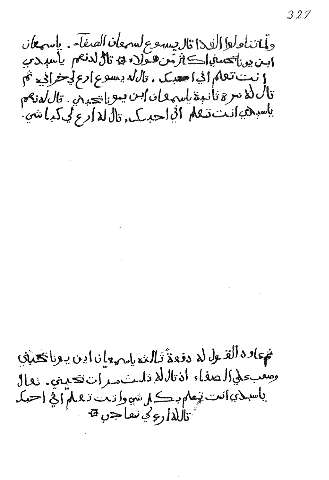 327
ولما تناولوا الغدا قال يسوع لسمعان الصفاء. ياسمعان
ابن يونا تحبني اكثر من هولاء قال له نعم ياسيدي
انت تعلم اني احبك. قال له يسوع ارع لي خرافي ثم
قال له مرة ثانية ياسمعان ابن يونا تحبني. قال له نعم
ياسيدي انت تعلم اني احبك، قال له ارع لي كباشي.
ثم عاود القول له دفعة ثالثه ياسمعان ابن يونا تحبني
وصعب علي الصفاء اذ قال له ثلث مرات تحبني. فقال
ياسيدي انت تعلم بكل شي وانت تعلم اني احبك
قال له ارع لي نعاجي